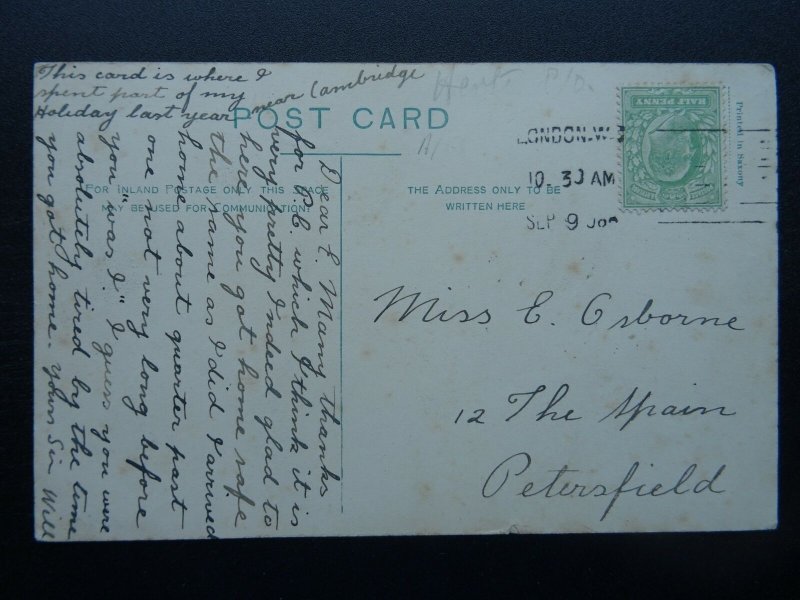 This card is where I
spent part of my
Holiday last year near Cambridge
POST CARD
FOR INLAND POSTAGE ONLY THIS SPACE
MAY BE USED FOR COMMUNICATION.
THE ADDRESS ONLY TO BE
WRITTEN HERE
HALF PENNY
Printed in Saxony
LONDON. W
10. 30 AM
SEP 9
Dear E. Many thanks
for P.C. which I think it is
very pretty Indeed glad to
hear you got home safe
the same as I did I arrived
home about quarter past
one not very long before
you "was I." I guess you were
absolutely tired by the time
you got home. Yours Sin Will
Miss E. Osborne
12 The Spain
Petersfield